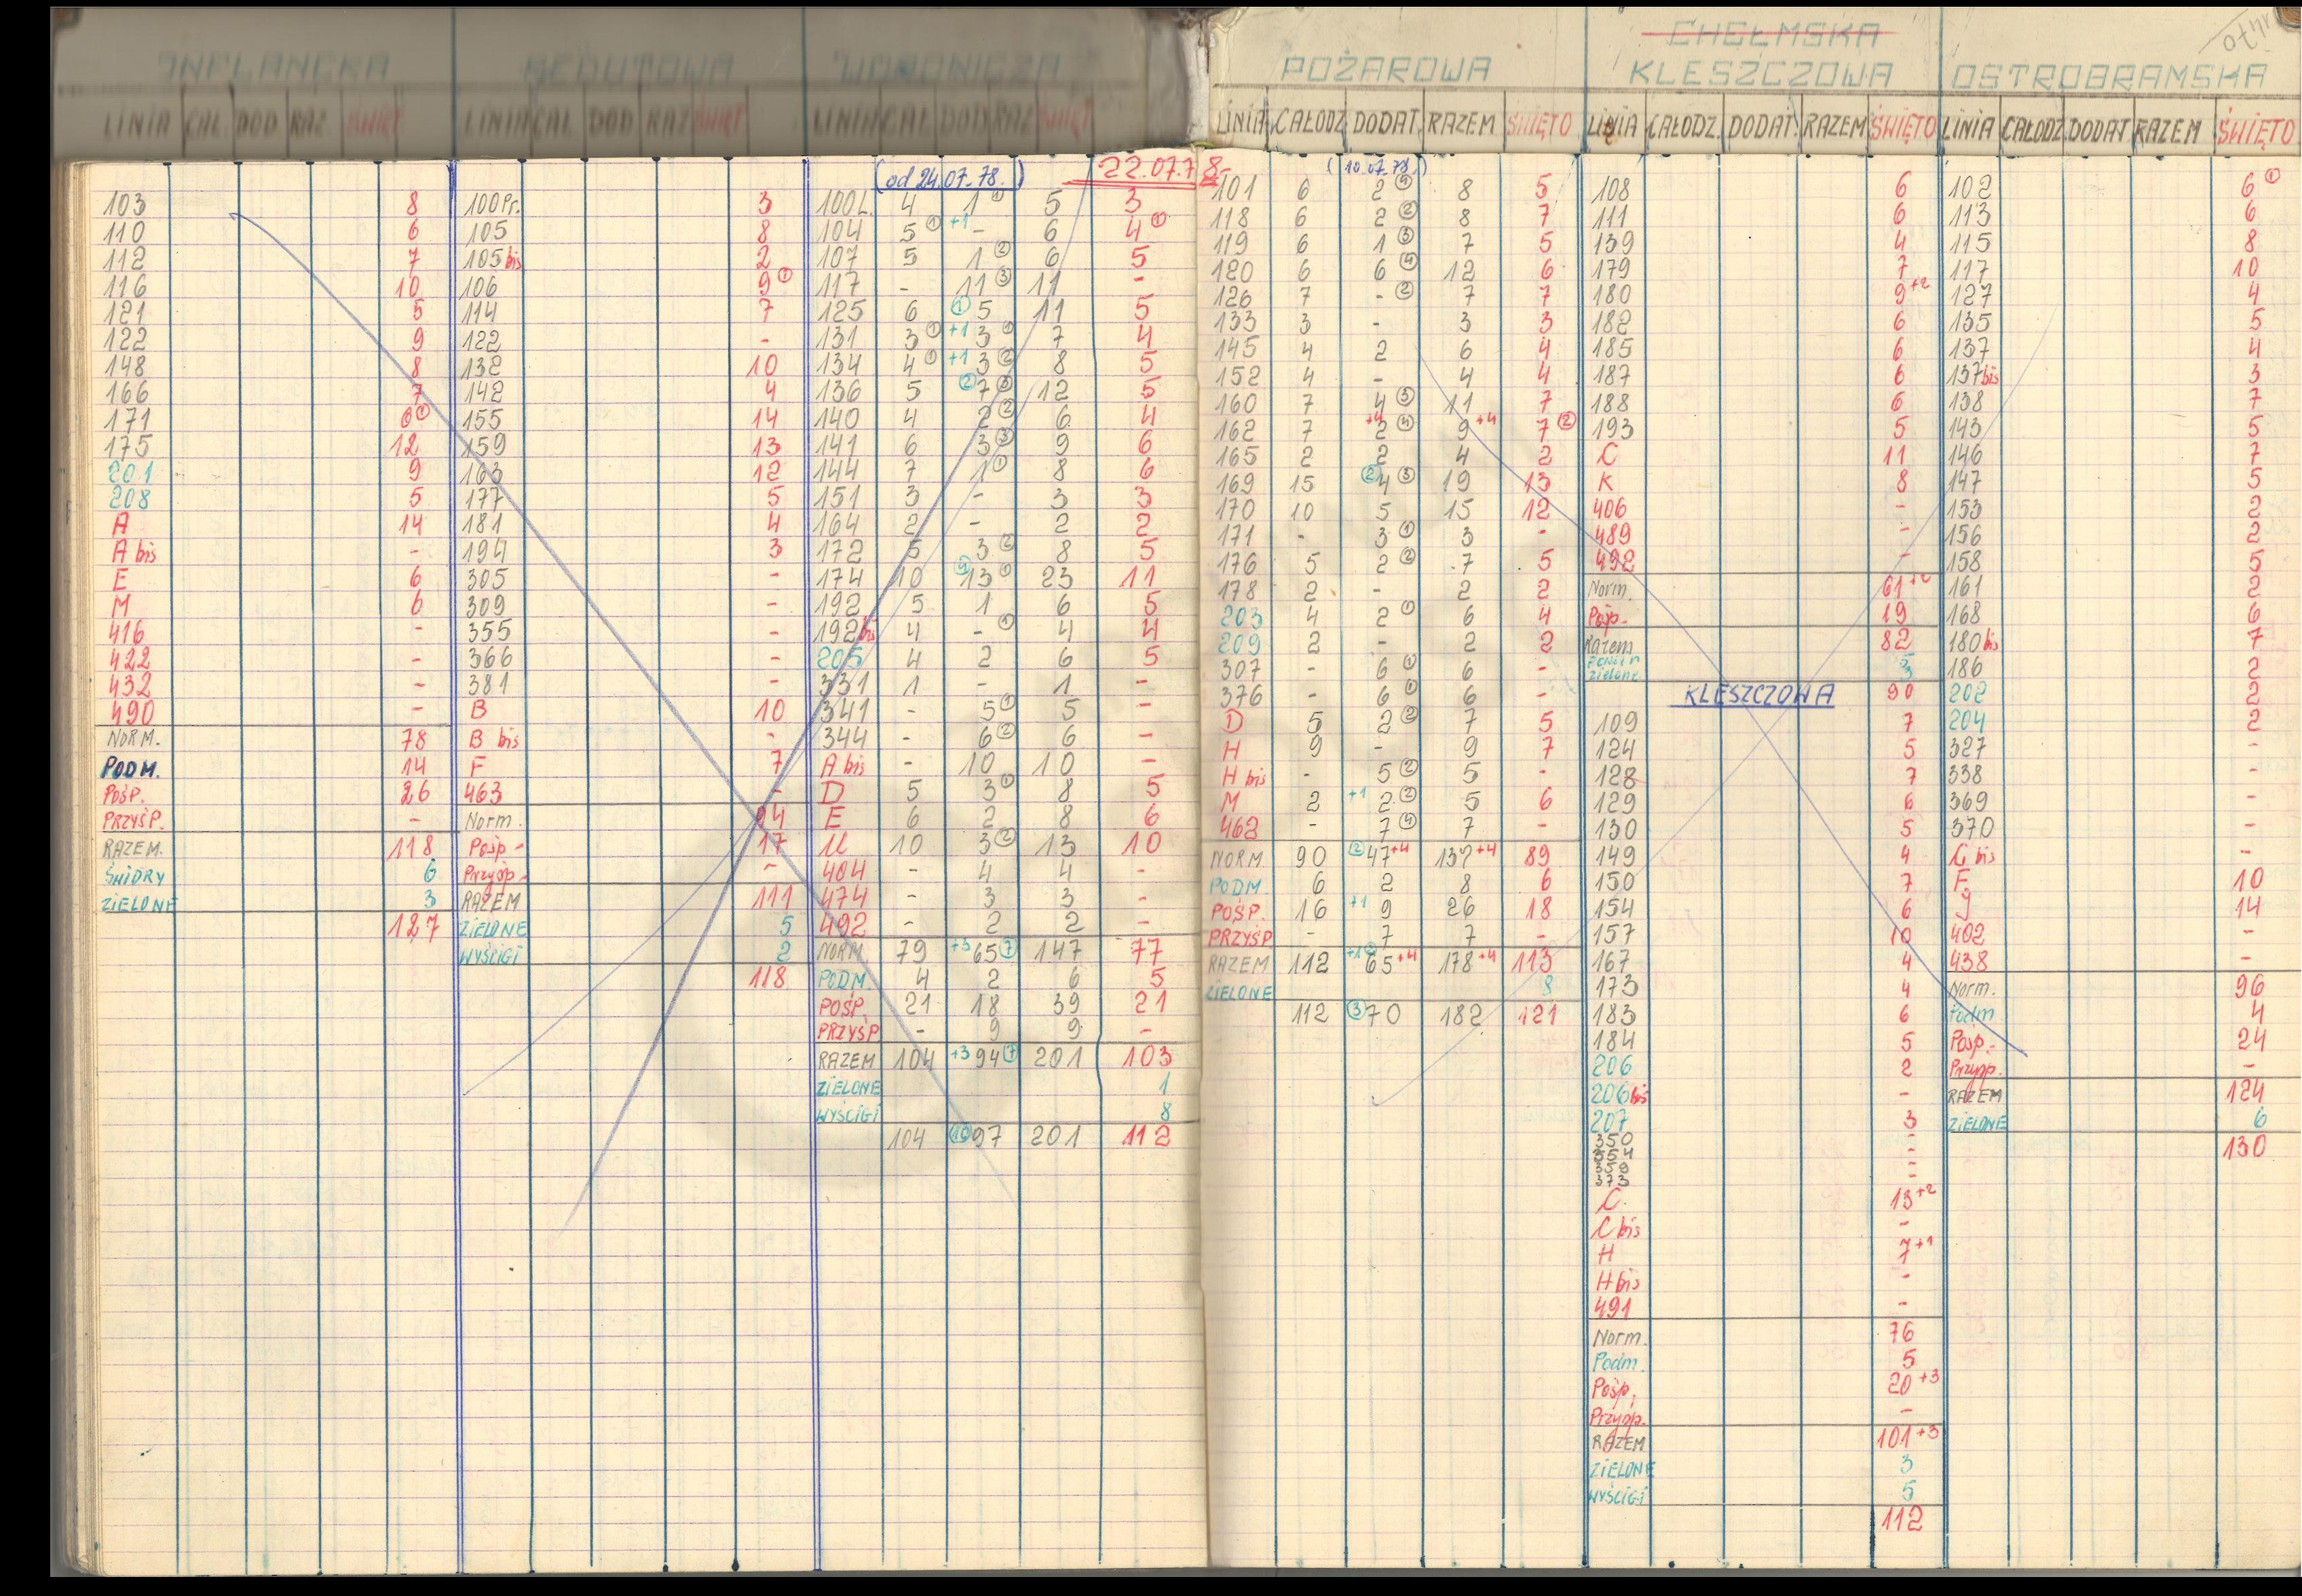 INFLANCKA
LINIA CAŁ DOD RAZ ŚWIĘT
103 8
110 6
112 7
116 10
121 5
122 9
148 8
166 7
171 6 ①
175 12
201 9
208 5
A 14
A bis -
E 6
M 6
416 -
422 -
432 -
490 -
NORM. 78
PODM. 14
POŚP. 26
PRZYŚP. -
RAZEM. 118
ŚWIDRY 6
ZIELONE 3
127
REDUTOWA
LINIA CAŁ DOD RAZ ŚWIĘT
100 Pr. 3
105 8
105 bis 2
106 9 ①
114 7
122 -
132 10
142 4
155 14
159 13
163 12
177 5
181 4
194 3
305 -
309 -
355 -
366 -
381 -
B 10
B bis -
F 7
463 -
Norm. 94
Pośp - 17
Przyśp - -
RAZEM 111
ZIELONE 5
WYŚCIGI 2
118
WORONICZA
LINIA CAŁ DOD RAZ ŚWIĘT
(od 24.07.78.) 22.07.78
100L. 4 1 ① 5 3
104 5 ① +1 - 6 4 ①
107 5 1 ② 6 5
117 - 11 ③ 11 -
125 6 ① 5 11 5
131 3 ① +1 3 ① 7 4
134 4 ① +1 3 ② 8 5
136 5 ② 7 ③ 12 5
140 4 2 ② 6 4
141 6 3 ③ 9 6
144 7 1 ① 8 6
151 3 - 3 3
164 2 - 2 2
172 5 3 ② 8 5
174 10 13 ① 23 11
192 5 1 6 5
192 bis 4 - ① 4 4
205 4 2 6 5
331 1 - 1 -
341 - 5 ① 5 -
344 - 6 ② 6 -
A bis - 10 10 -
D 5 3 ① 8 5
E 6 2 8 6
U 10 3 ② 13 10
404 - 4 4 -
474 - 3 3 -
492 - 2 2 -
NORM. 79 +3 65 ⑦ 147 77
PODM. 4 2 6 5
POŚP. 21 18 39 21
PRZYŚP - 9 9 -
RAZEM 104 +3 94 ⑦ 201 103
ZIELONE 1
WYŚCIGI 8
104 ⑩ 97 201 112
POŻAROWA
LINIA CAŁODZ DODAT. RAZEM ŚWIĘTO
(10.07.78.)
101 6 2 ④ 8 5
118 6 2 ② 8 7
119 6 1 ③ 7 5
120 6 6 ④ 12 6
126 7 - ② 7 7
133 3 - 3 3
145 4 2 6 4
152 4 - 4 4
160 7 4 ③ 11 7
162 7 +4 2 ④ 9 +4 7 ②
165 2 2 4 2
169 15 ② 4 ③ 19 13
170 10 5 15 12
171 - 3 ① 3 -
176 5 2 ② 7 5
178 2 - 2 2
203 4 2 ① 6 4
209 2 - 2 2
307 - 6 ① 6 -
376 - 6 ① 6 -
D 5 2 ② 7 5
H 9 - 9 7
H bis - 5 ② 5 -
M 2 +1 2 ② 5 6
462 - 7 ④ 7 -
NORM. 90 ② 47 +4 137 +4 89
PODM. 6 2 8 6
POŚP. 16 +1 9 26 18
PRZYŚP - 7 7 -
RAZEM 112 +1 ② 65 +4 178 +4 113
ZIELONE 8
112 ③ 70 182 121
CHEŁMSKA
KLESZCZOWA
LINIA CAŁODZ. DODAT. RAZEM ŚWIĘTO
108 6
111 6
139 4
179 7
180 9 +2
182 6
185 6
187 6
188 6
193 5
C 11
K 8
406 -
489 -
492 -
Norm. 61 +2
Pośp. 19
Razem 82
zielone 3
KLESZCZOWA 90
109 7
124 5
128 7
129 6
130 5
149 4
150 7
154 6
157 10
167 4
173 4
183 6
184 5
206 2
206 bis -
207 3
350 -
354 -
359 -
373 -
C 13 +2
C bis -
H 7 +1
H bis -
491 -
Norm. 76
Podm. 5
Pośp. 20 +3
Przyśp. -
RAZEM 101 +3
ZIELONE 3
WYŚCIGI 5
112
OSTROBRAMSKA
LINIA CAŁODZ DODAT RAZEM ŚWIĘTO
102 6 ①
113 6
115 8
117 10
127 4
135 5
137 4
137 bis 3
138 7
143 5
146 7
147 5
153 2
156 2
158 5
161 2
168 6
180 bis 7
186 2
202 2
204 2
327 -
338 -
369 -
370 -
G bis -
F 10
J 14
402 -
438 -
Norm. 96
Podm 4
Pośp.- 24
Przyśp. -
RAZEM 124
ZIELONE 6
130